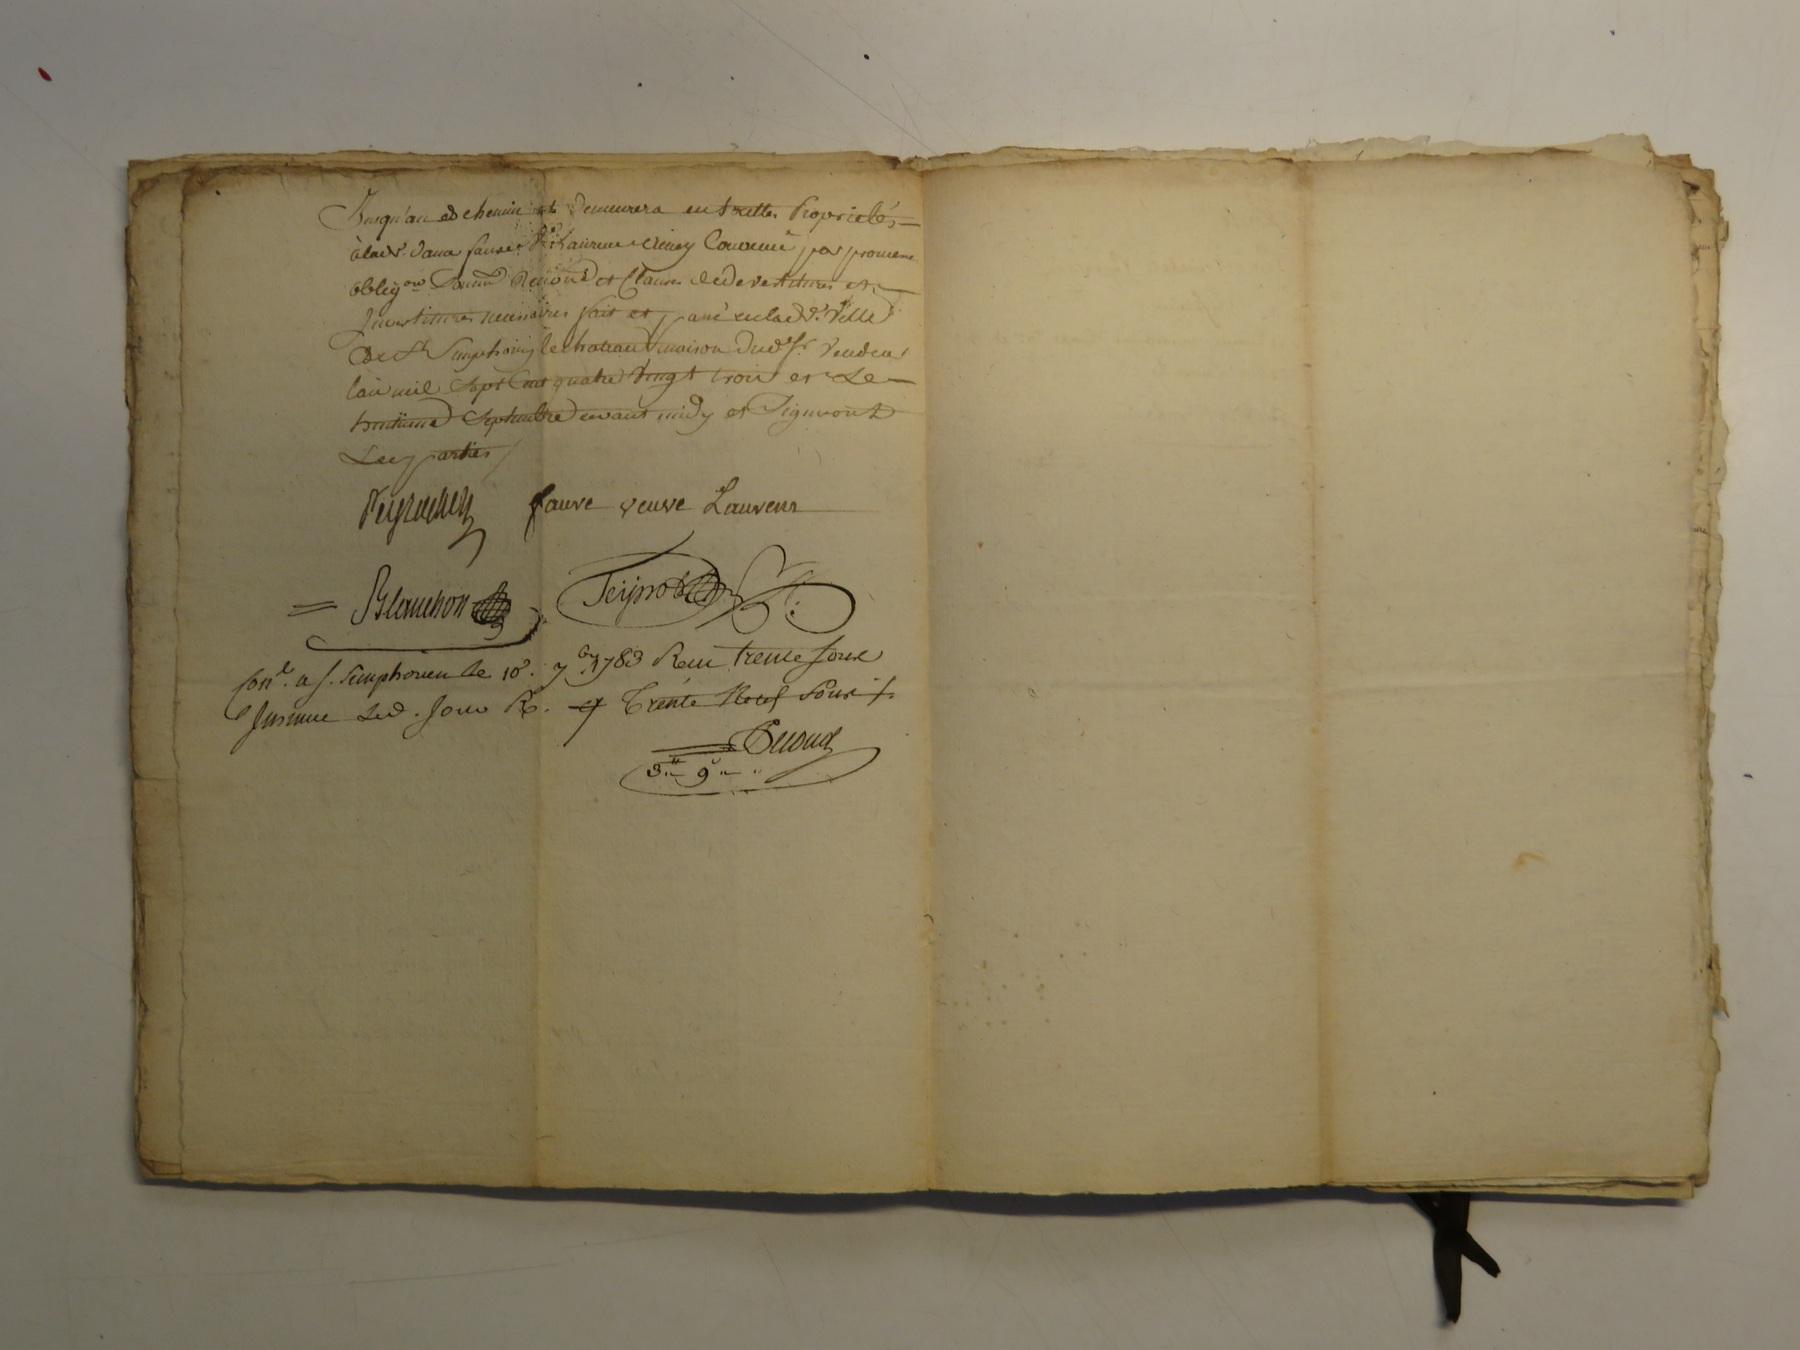 Jusqu'au ed chemin et demeurera en toutte Propriété
à lad.e dame fauve V.e Laurens Convenu par promesse
oblig.on soum.on Renon.on et Clauses de devestitures et
Investitures necessaires fait et passé en lad.e Ville
De S.t Simphorin le chateau maison dud. S.r Vendeur
l'an mil Sept Cent quatre Vingt trois et Le
troisieme Septembre avant midy et Signeront
Les parties
fauve veuve Laurens
Blanchon
Con.lé a S. Simphorien le 10. 7bre 1783 Reçu trente sous
Insinué Led. Jour R. Trente Neuf Sous
3.tt 9.s